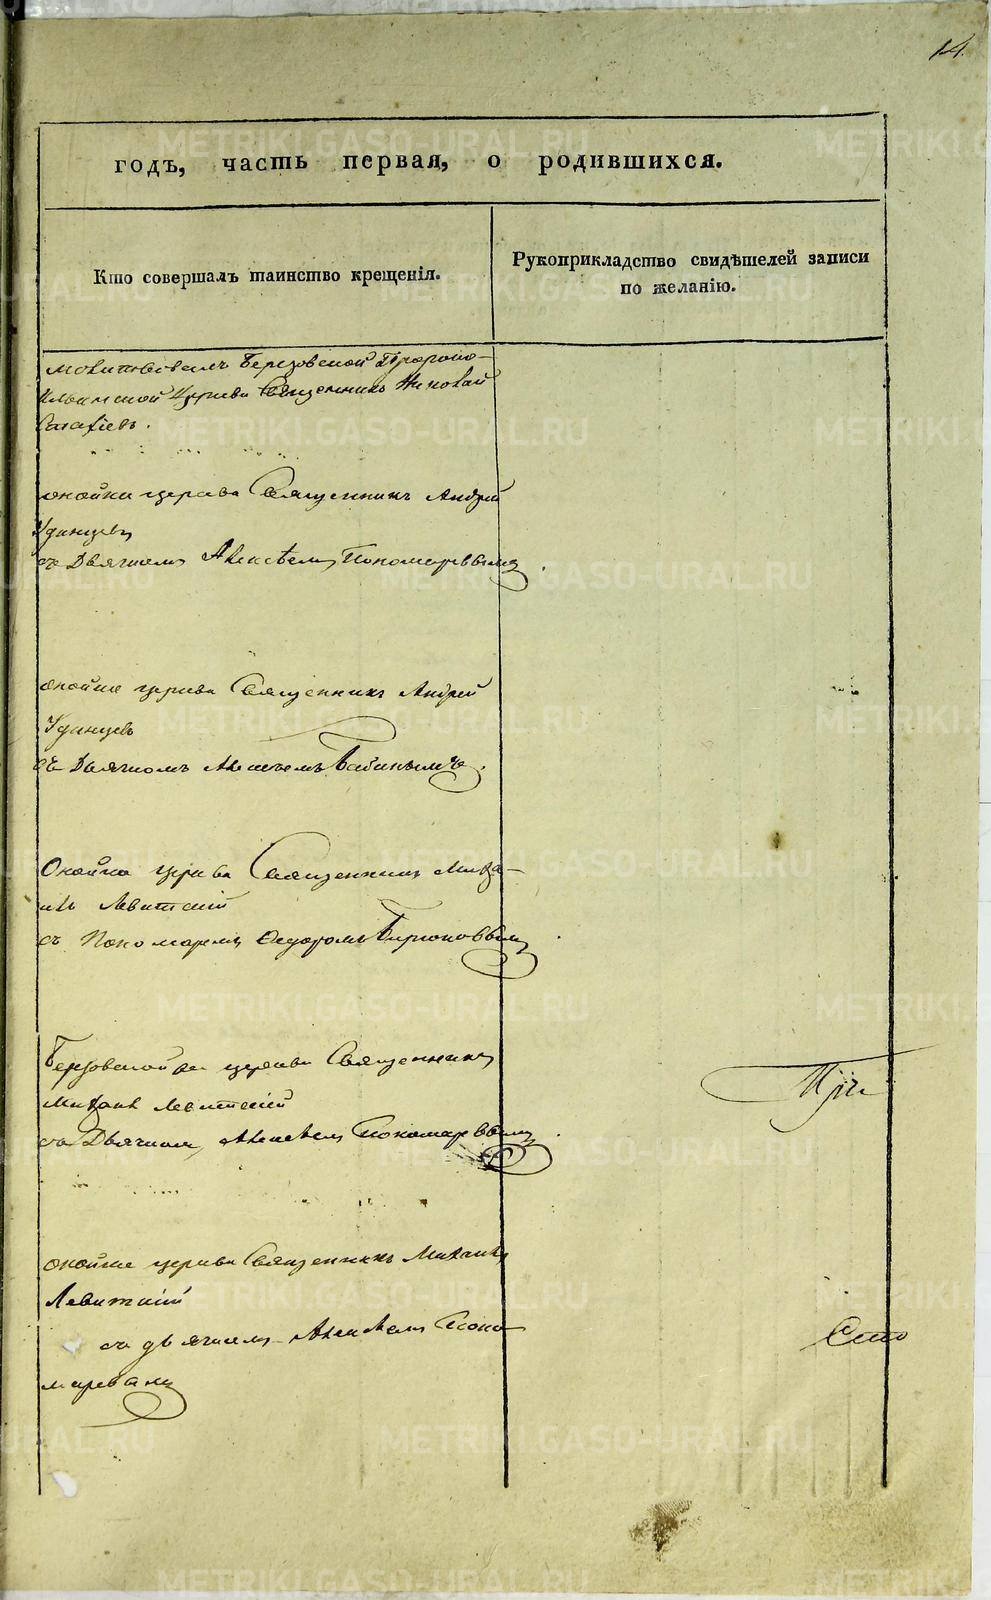 14.
годъ, часть первая, о родившихся.
Кто совершалъ таинство крещенія.
Рукоприкладство свидѣтелей записи
по желанію.
Березовской Пророко-
Ильинской Церкви Священникъ Николай
церкви Священникъ Андрей
Удинцевъ
съ Дьячкомъ Алексѣемъ Пономаревымъ
церкви Священникъ Андрей
Удинцевъ
съ Дьячкомъ Алексѣемъ Бабинымъ
Оной церкви Священникъ Миха-
илъ Левитскій
съ Пономаремъ Ѳедоромъ
Березовской церкви Священникъ
Михаилъ Левитскій
съ Дьячкомъ Алексѣемъ Пономаревымъ
церкви Священникъ Михаилъ
Левитскій
съ дьячкомъ Алексѣемъ Поно-
маревымъ
METRIKI.GASO-URAL.RU